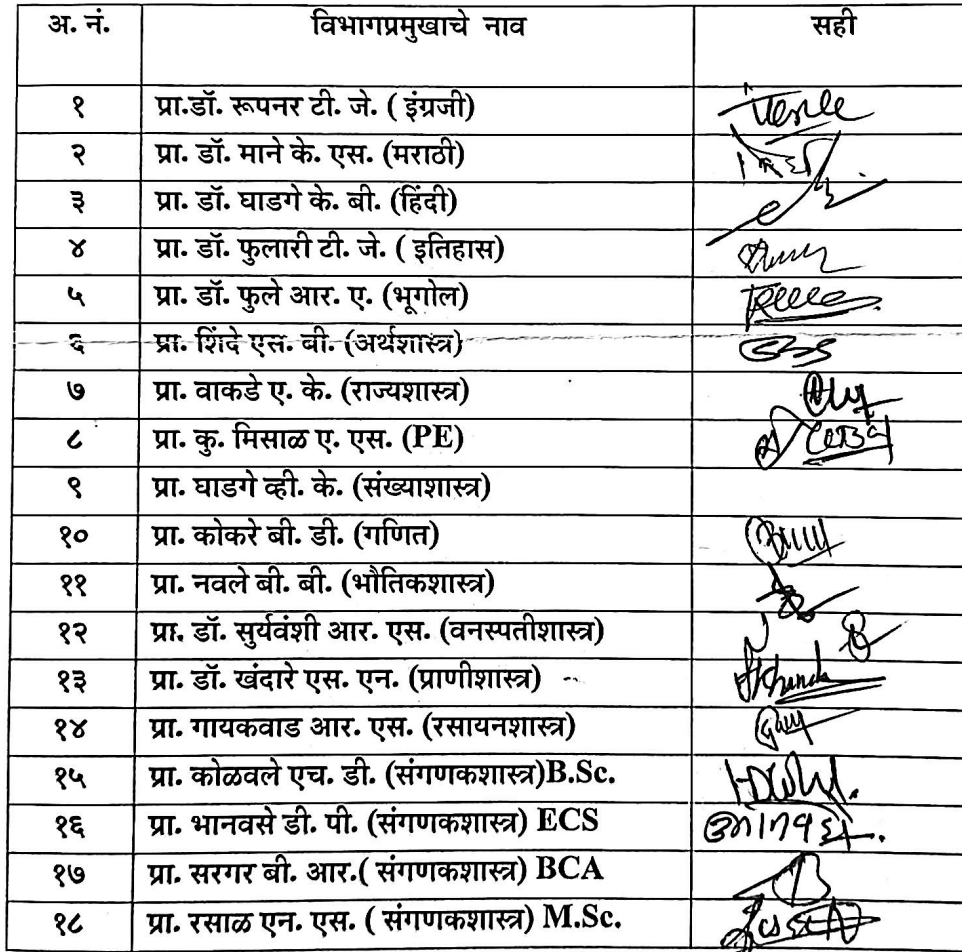 अ. नं. विभागप्रमुखाचे नाव सही
१ प्रा.डॉ. रूपनर टी. जे. ( इंग्रजी)
२ प्रा. डॉ. माने के. एस. (मराठी)
३ प्रा. डॉ. घाडगे के. बी. (हिंदी)
४ प्रा. डॉ. फुलारी टी. जे. ( इतिहास)
५ प्रा. डॉ. फुले आर. ए. (भूगोल)
६ प्रा. शिंदे एस. बी. (अर्थशास्त्र)
७ प्रा. वाकडे ए. के. (राज्यशास्त्र)
८ प्रा. कु. मिसाळ ए. एस. (PE)
९ प्रा. घाडगे व्ही. के. (संख्याशास्त्र)
१० प्रा. कोकरे बी. डी. (गणित)
११ प्रा. नवले बी. बी. (भौतिकशास्त्र)
१२ प्रा. डॉ. सुर्यवंशी आर. एस. (वनस्पतीशास्त्र)
१३ प्रा. डॉ. खंदारे एस. एन. (प्राणीशास्त्र)
१४ प्रा. गायकवाड आर. एस. (रसायनशास्त्र)
१५ प्रा. कोळवले एच. डी. (संगणकशास्त्र)B.Sc.
१६ प्रा. भानवसे डी. पी. (संगणकशास्त्र) ECS
१७ प्रा. सरगर बी. आर.( संगणकशास्त्र) BCA
१८ प्रा. रसाळ एन. एस. ( संगणकशास्त्र) M.Sc.